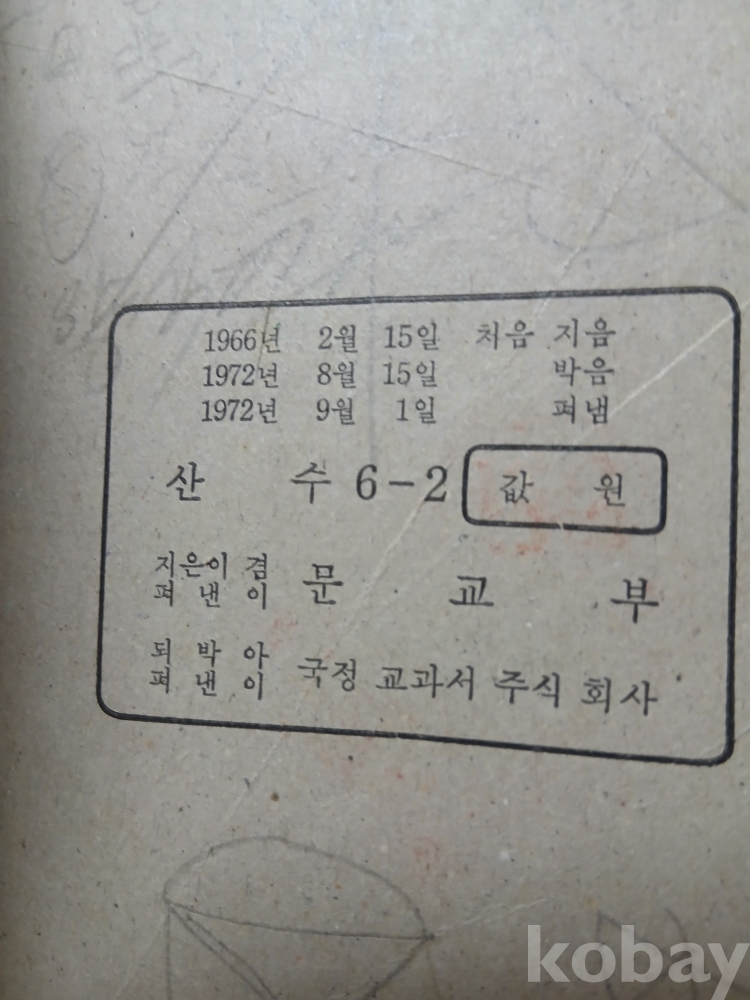 1966년 2월 15일 처음 지음
1972년 8월 15일 박음
1972년 9월 1일 펴냄
산 수 6-2 값 원
지은이 겸
펴 낸 이
문 교 부
되 박 아
펴 낸 이
국정 교과서 주식 회사
kobay